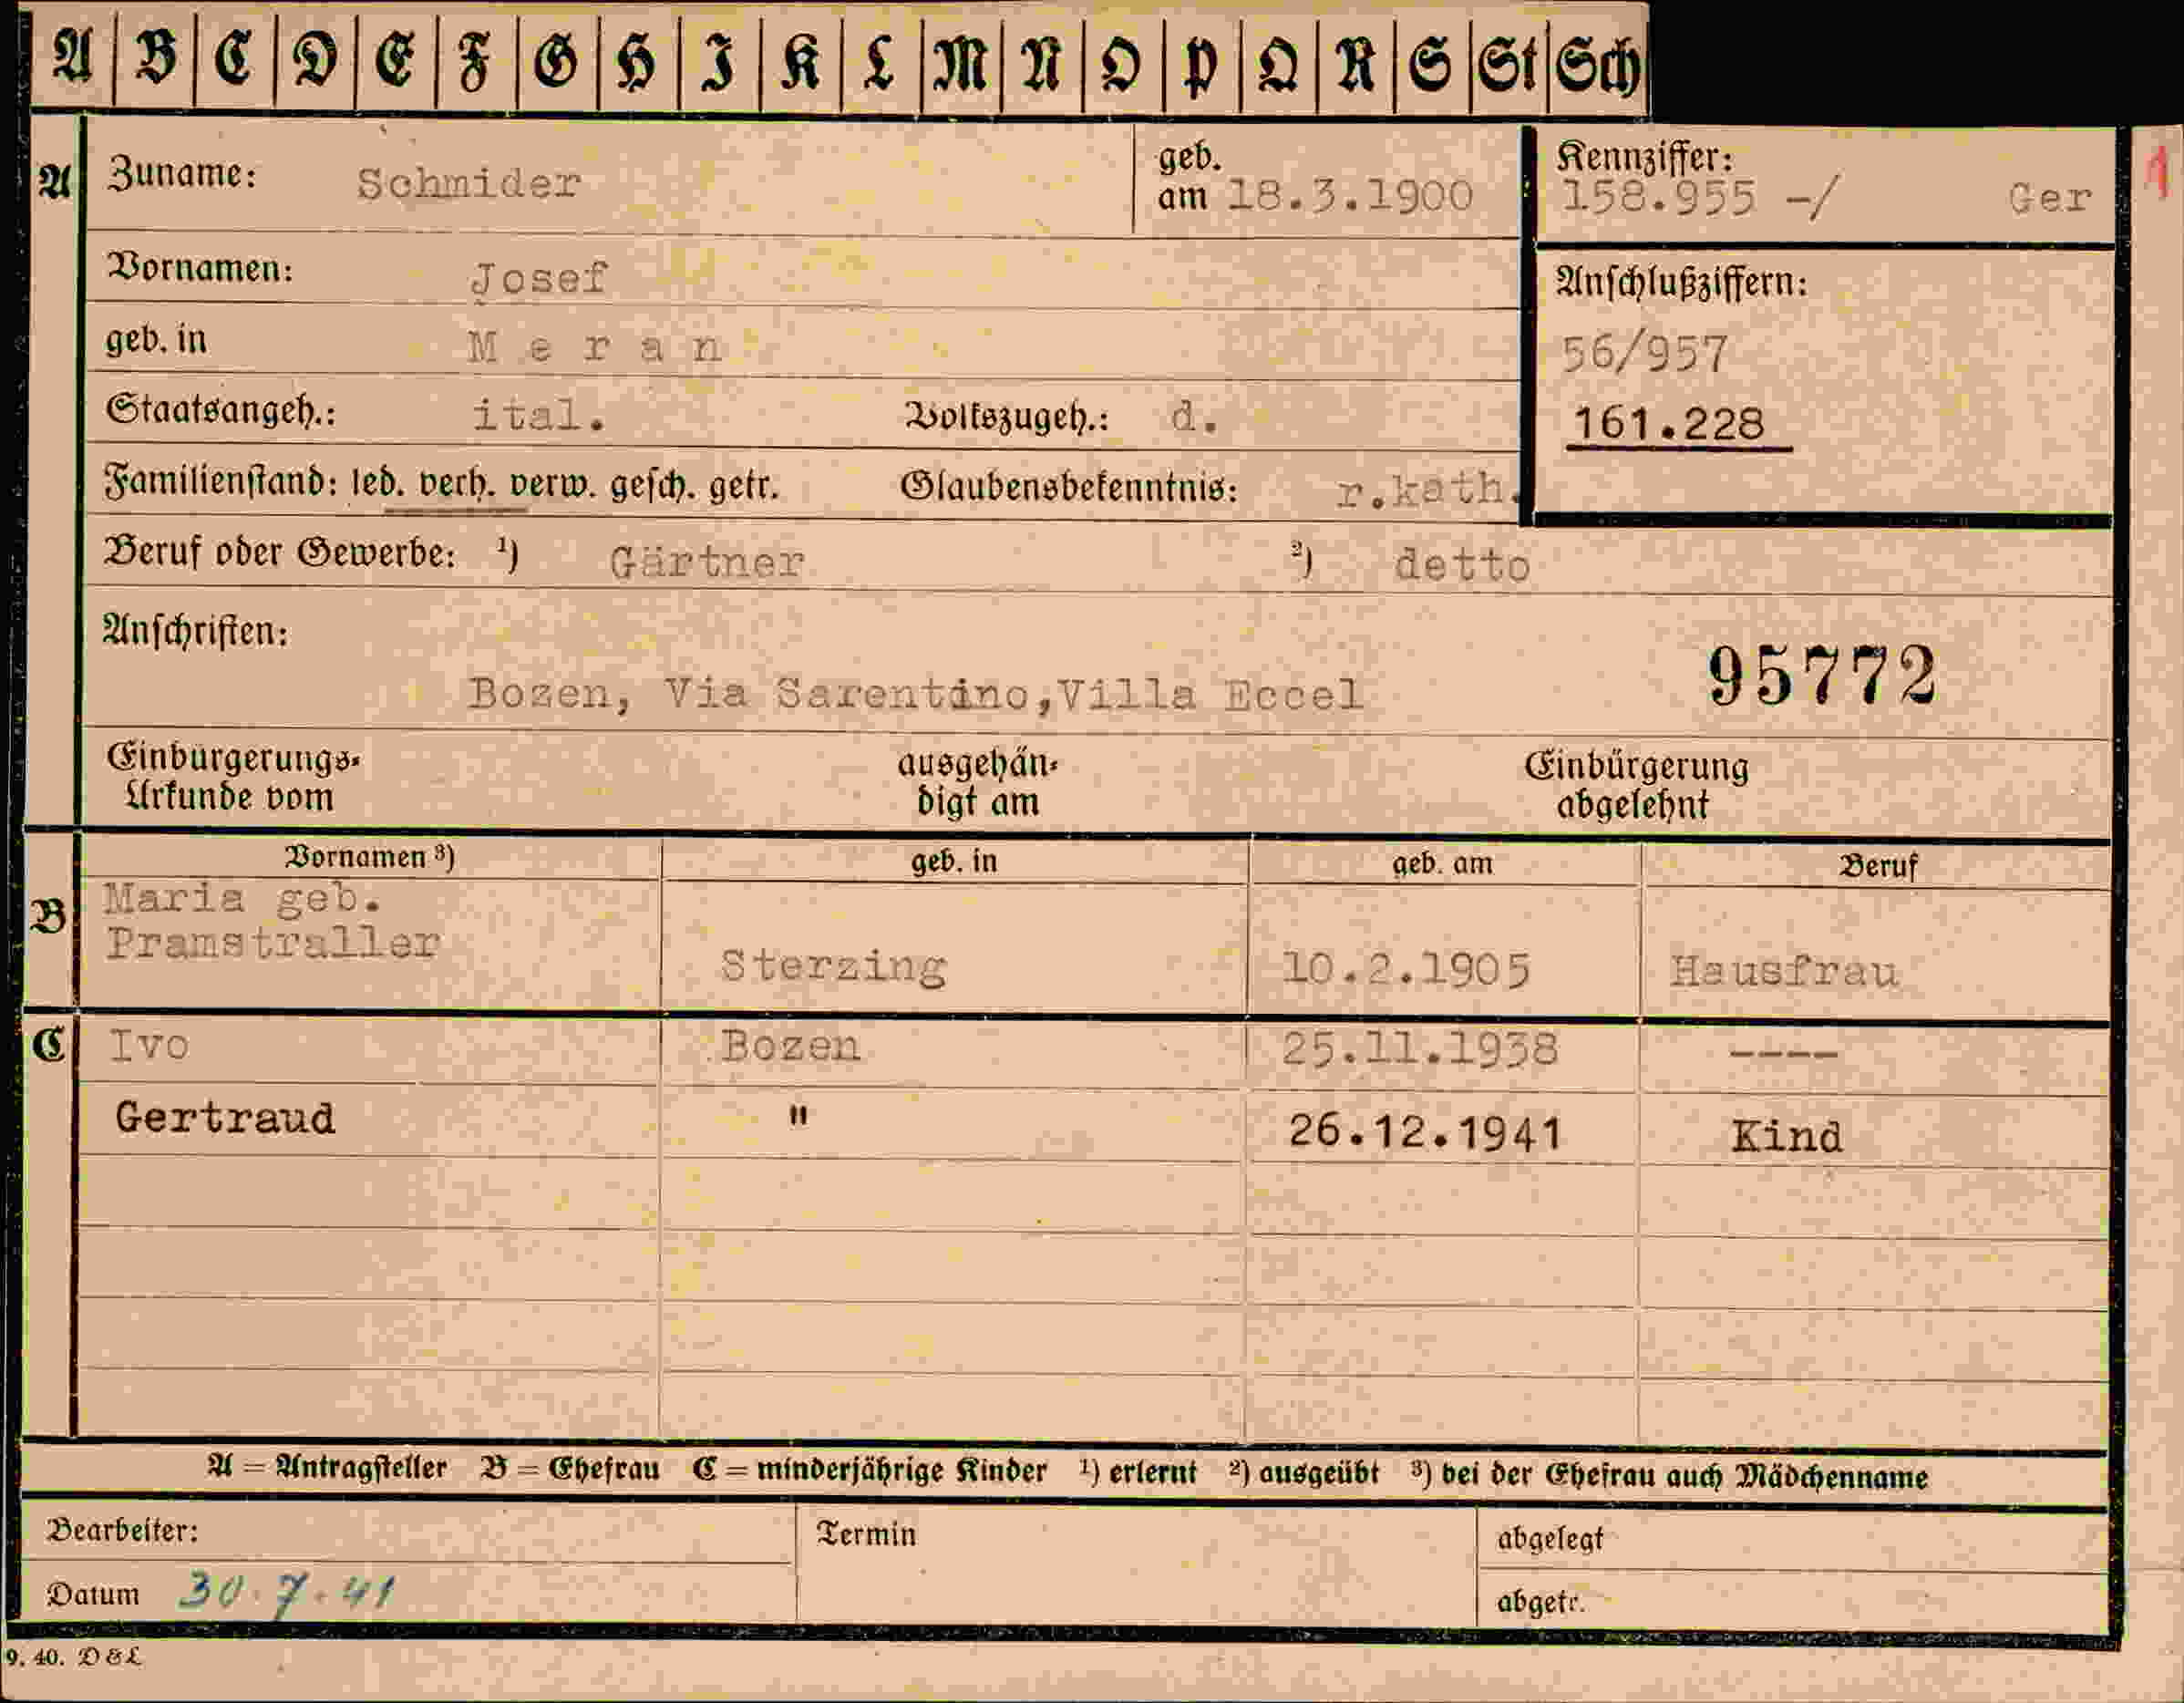 A B C D E F G H I K L M N O P Q R S St Sch
A Zuname: Schmider geb. am 18.3.1900 Kennziffer: 158.955 -/ Ger 1
Vornamen: Josef Anschlußziffern:
geb. in Meran 56/957
Staatsangeh.: ital. Volkszugeh.: d. 161.228
Familienstand: led. verh. verw. gesch. getr. Glaubensbekenntnis: r.kath.
Beruf oder Gewerbe: ¹) Gärtner ²) detto
Anschriften:
Bozen, Via Sarentino,Villa Eccel 95772
Einbürgerungs- ausgehän- Einbürgerung
Urkunde vom digt am abgelehnt
Vornamen ³) geb. in geb. am Beruf
B Maria geb.
Pramstraller Sterzing 10.2.1905 Hausfrau
C Ivo Bozen 25.11.1938 ----
Gertraud " 26.12.1941 Kind
A = Antragsteller B = Ehefrau C = minderjährige Kinder ¹) erlernt ²) ausgeübt ³) bei der Ehefrau auch Mädchenname
Bearbeiter: Termin abgelegt
Datum 30.7.41 abgetr.
9. 40. D&L